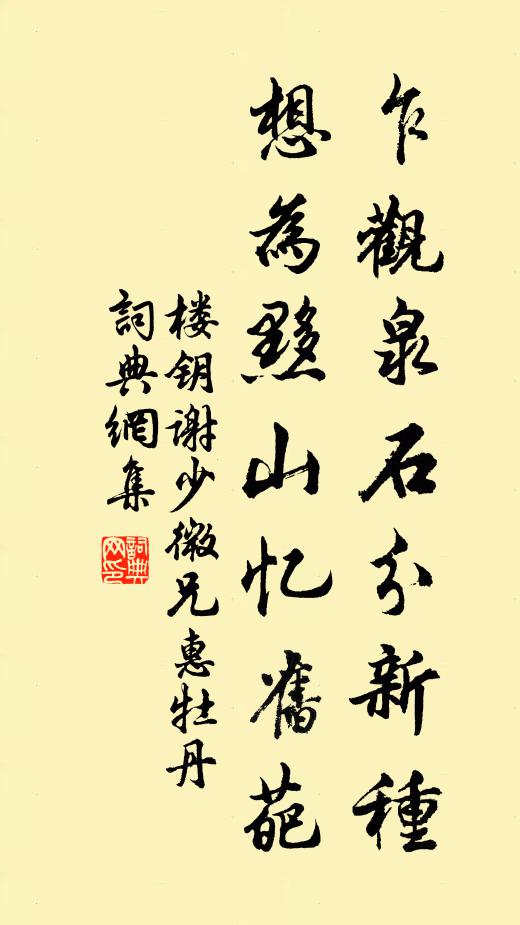 乍觀泉石分新種
想為黟山忆舊葩
楼钥谢少微兄惠牡丹
詞典網集
詞典网印